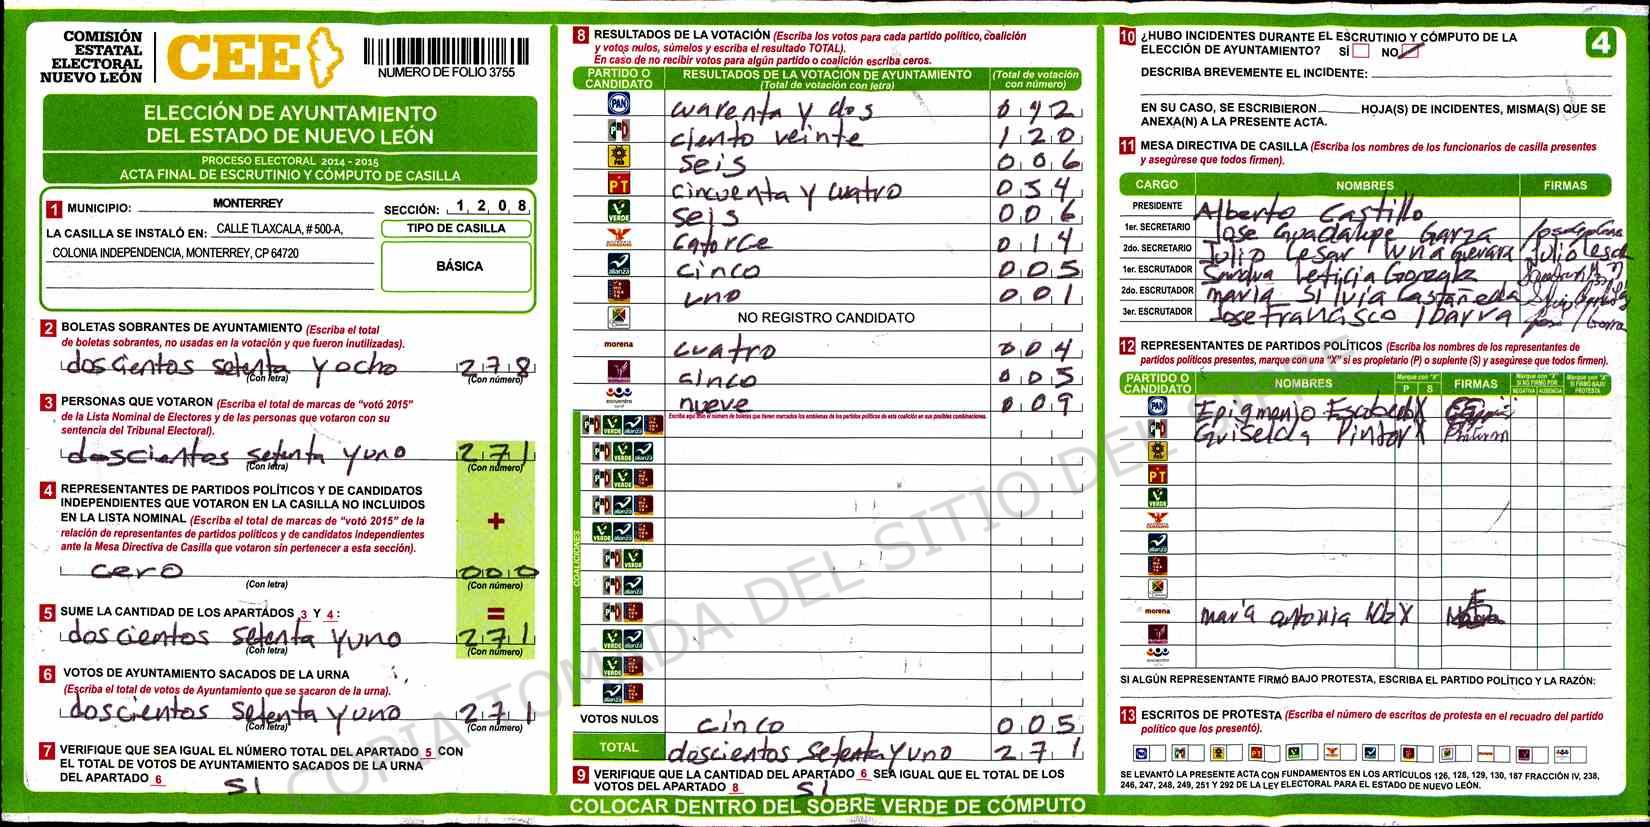 COMISIÓN
ESTATAL
ELECTORAL
NUEVO LEÓN
CEE
NUMERO DE FOLIO 3755
ELECCIÓN DE AYUNTAMIENTO
DEL ESTADO DE NUEVO LEÓN
PROCESO ELECTORAL 2014 - 2015
ACTA FINAL DE ESCRUTINIO Y CÓMPUTO DE CASILLA
1 MUNICIPIO: MONTERREY
SECCIÓN: 1 2 0 8
LA CASILLA SE INSTALÓ EN: CALLE TLAXCALA, # 500-A,
COLONIA INDEPENDENCIA, MONTERREY, CP 64720
TIPO DE CASILLA
BÁSICA
2 BOLETAS SOBRANTES DE AYUNTAMIENTO (Escriba el total
de boletas sobrantes, no usadas en la votación y que fueron inutilizadas).
doscientos setenta y ocho 2 7 8
(Con letra) (Con número)
3 PERSONAS QUE VOTARON (Escriba el total de marcas de “votó 2015”
de la Lista Nominal de Electores y de las personas que votaron con su
sentencia del Tribunal Electoral).
doscientos setenta y uno 2 7 1
(Con letra) (Con número)
4 REPRESENTANTES DE PARTIDOS POLÍTICOS Y DE CANDIDATOS
INDEPENDIENTES QUE VOTARON EN LA CASILLA NO INCLUIDOS
EN LA LISTA NOMINAL (Escriba el total de marcas de “votó 2015” de la
relación de representantes de partidos políticos y de candidatos independientes
ante la Mesa Directiva de Casilla que votaron sin pertenecer a esta sección).
+
cero 0 0 0
(Con letra) (Con número)
5 SUME LA CANTIDAD DE LOS APARTADOS 3 Y 4 :
=
doscientos setenta y uno 2 7 1
(Con letra) (Con número)
6 VOTOS DE AYUNTAMIENTO SACADOS DE LA URNA
(Escriba el total de votos de Ayuntamiento que se sacaron de la urna).
doscientos setenta y uno 2 7 1
(Con letra) (Con número)
7 VERIFIQUE QUE SEA IGUAL EL NÚMERO TOTAL DEL APARTADO 5 CON
EL TOTAL DE VOTOS DE AYUNTAMIENTO SACADOS DE LA URNA
DEL APARTADO 6 SI
8 RESULTADOS DE LA VOTACIÓN (Escriba los votos para cada partido político, coalición
y votos nulos, súmelos y escriba el resultado TOTAL).
En caso de no recibir votos para algún partido o coalición escriba ceros.
PARTIDO O CANDIDATO
RESULTADOS DE LA VOTACIÓN DE AYUNTAMIENTO
(Total de votación con letra)
(Total de votación con número)
PAN cuarenta y dos 0 4 2
PRD ciento veinte 1 2 0
PRD seis 0 0 6
PT cincuenta y cuatro 0 5 4
VERDE seis 0 0 6
catorce 0 1 4
alianza cinco 0 0 5
uno 0 0 1
NO REGISTRO CANDIDATO
morena cuatro 0 0 4
cinco 0 0 5
encuentro nueve 0 0 9
Escriba aquí sólo el número de boletas que tienen marcados los emblemas de los partidos políticos de esta coalición en sus posibles combinaciones.
COALICIONES
VOTOS NULOS cinco 0 0 5
TOTAL doscientos setenta y uno 2 7 1
9 VERIFIQUE QUE LA CANTIDAD DEL APARTADO 6 SEA IGUAL QUE EL TOTAL DE LOS
VOTOS DEL APARTADO 8 SI
COLOCAR DENTRO DEL SOBRE VERDE DE CÓMPUTO
10 ¿HUBO INCIDENTES DURANTE EL ESCRUTINIO Y CÓMPUTO DE LA
ELECCIÓN DE AYUNTAMIENTO? SÍ NO
4
DESCRIBA BREVEMENTE EL INCIDENTE:
EN SU CASO, SE ESCRIBIERON HOJA(S) DE INCIDENTES, MISMA(S) QUE SE
ANEXA(N) A LA PRESENTE ACTA.
11 MESA DIRECTIVA DE CASILLA (Escriba los nombres de los funcionarios de casilla presentes
y asegúrese que todos firmen).
CARGO NOMBRES FIRMAS
PRESIDENTE Alberto Castillo
1er. SECRETARIO Jose Guadalupe Garza
2do. SECRETARIO Julio Cesar Guevara
1er. ESCRUTADOR Sandra Leticia Gonzalez
2do. ESCRUTADOR Maria Silvia Castañeda
3er. ESCRUTADOR Jose Francisco Ibarra
12 REPRESENTANTES DE PARTIDOS POLÍTICOS (Escriba los nombres de los representantes de
partidos políticos presentes, marque con una “X” si es propietario (P) o suplente (S) y asegúrese que todos firmen).
PARTIDO O CANDIDATO
NOMBRES
Marque con “X”
P S
FIRMAS
Marque con “X” SI NO FIRMÓ POR
NEGATIVA AUSENCIA
Marque con “X” SI FIRMÓ BAJO PROTESTA
PAN Epigmenio Escobedo X
Griselda Pintor X
PRD
PT
VERDE
alianza
morena maria antonia X
encuentro
SI ALGÚN REPRESENTANTE FIRMÓ BAJO PROTESTA, ESCRIBA EL PARTIDO POLÍTICO Y LA RAZÓN:
13 ESCRITOS DE PROTESTA (Escriba el número de escritos de protesta en el recuadro del partido
político que los presentó).
SE LEVANTÓ LA PRESENTE ACTA CON FUNDAMENTOS EN LOS ARTÍCULOS 126, 128, 129, 130, 187 FRACCIÓN IV, 238,
246, 247, 248, 249, 251 Y 292 DE LA LEY ELECTORAL PARA EL ESTADO DE NUEVO LEÓN.
COPIA TOMADA DEL SITIO DEL SIPRE